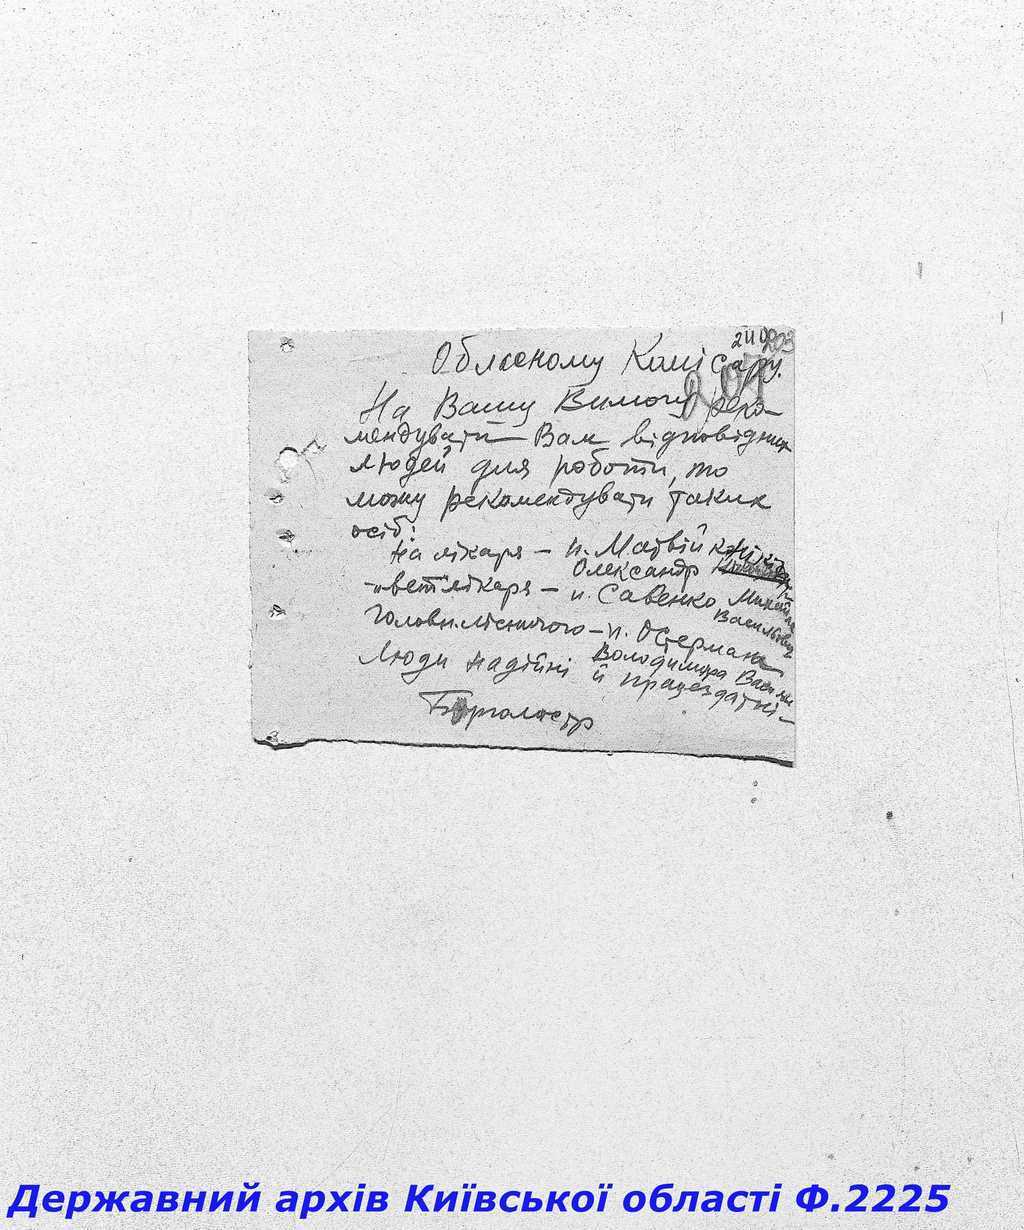 203
207
Обласному Комісару.
На Вашу Вимогу реко-
мендувати Вам відповідних
людей для роботи, то
можу рекомендувати таких
осіб:
На лікаря – п. Матвій
Олександр
-"- вет лікаря – п. Савенко Михайла
Васильович
Головн. лісничого – п. Остермана
Володимира Васильов
Люди надійні й працездатні –
Бургомістр
Державний архів Київської області Ф.2225